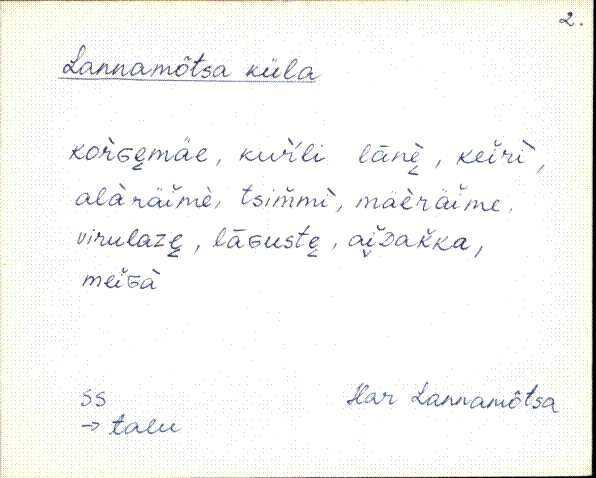 2.
Lannamõtsa küla
kor̀ɢe̮mäe, kur̆'li lānè̮, keĭrì,
alàräĭmè, tsim̆mì, mäèräĭme.
virulaze̮, lāɢuste̮, ai̮ᴅak̆ka,
meĭɢà
SS
→ talu
Har Lannamõtsa